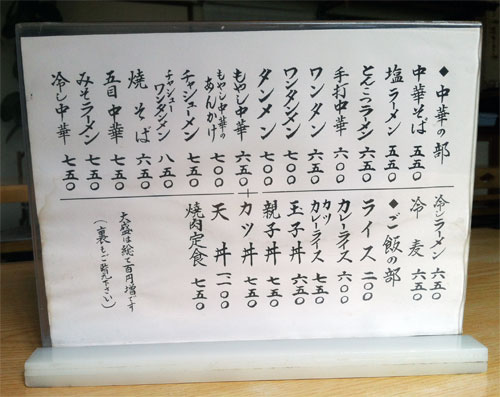 ◆中華の部
中華そば 五五〇
塩ラーメン 五五〇
とんこつラーメン 六五〇
手打中華 六〇〇
ワンタン 六五〇
ワンタンメン 七〇〇
タンメン 七〇〇
もやし中華 六五〇
もやし中華のあんかけ 七〇〇
チャシューメン 七五〇
チャシューワンタンメン 八五〇
焼そば 六五〇
五目中華 七五〇
みそラーメン 七五〇
冷し中華 七五〇
冷しラーメン 六五〇
冷麦 六五〇
◆ご飯の部
ライス 二〇〇
カレーライス 六〇〇
カツカレーライス 七五〇
玉子丼 六五〇
親子丼 七五〇
カツ丼 七五〇
天丼 一二〇〇
焼肉定食 七五〇
大盛は総て百円増です
(裏もご覧下さい)